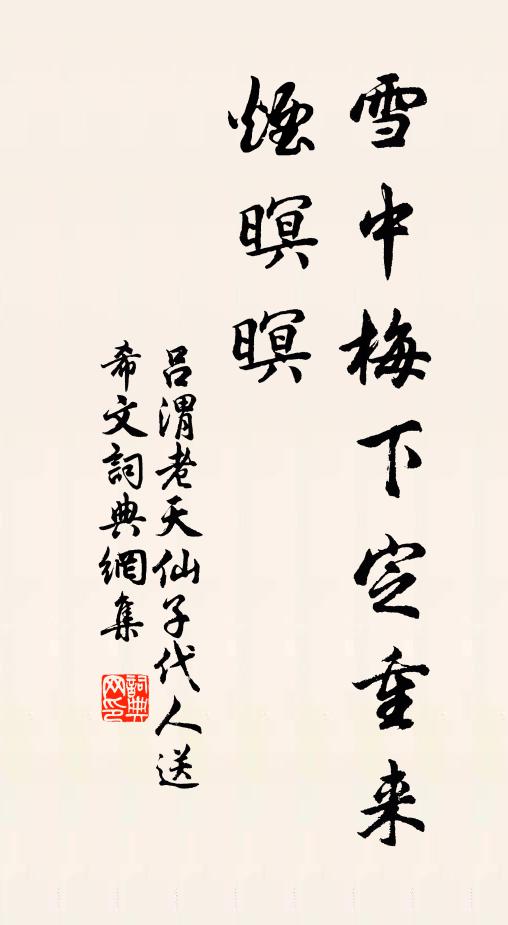 雪中梅下定重来
烟暝暝
吕渭老天仙子代人送
希文詞典網集
詞典网印